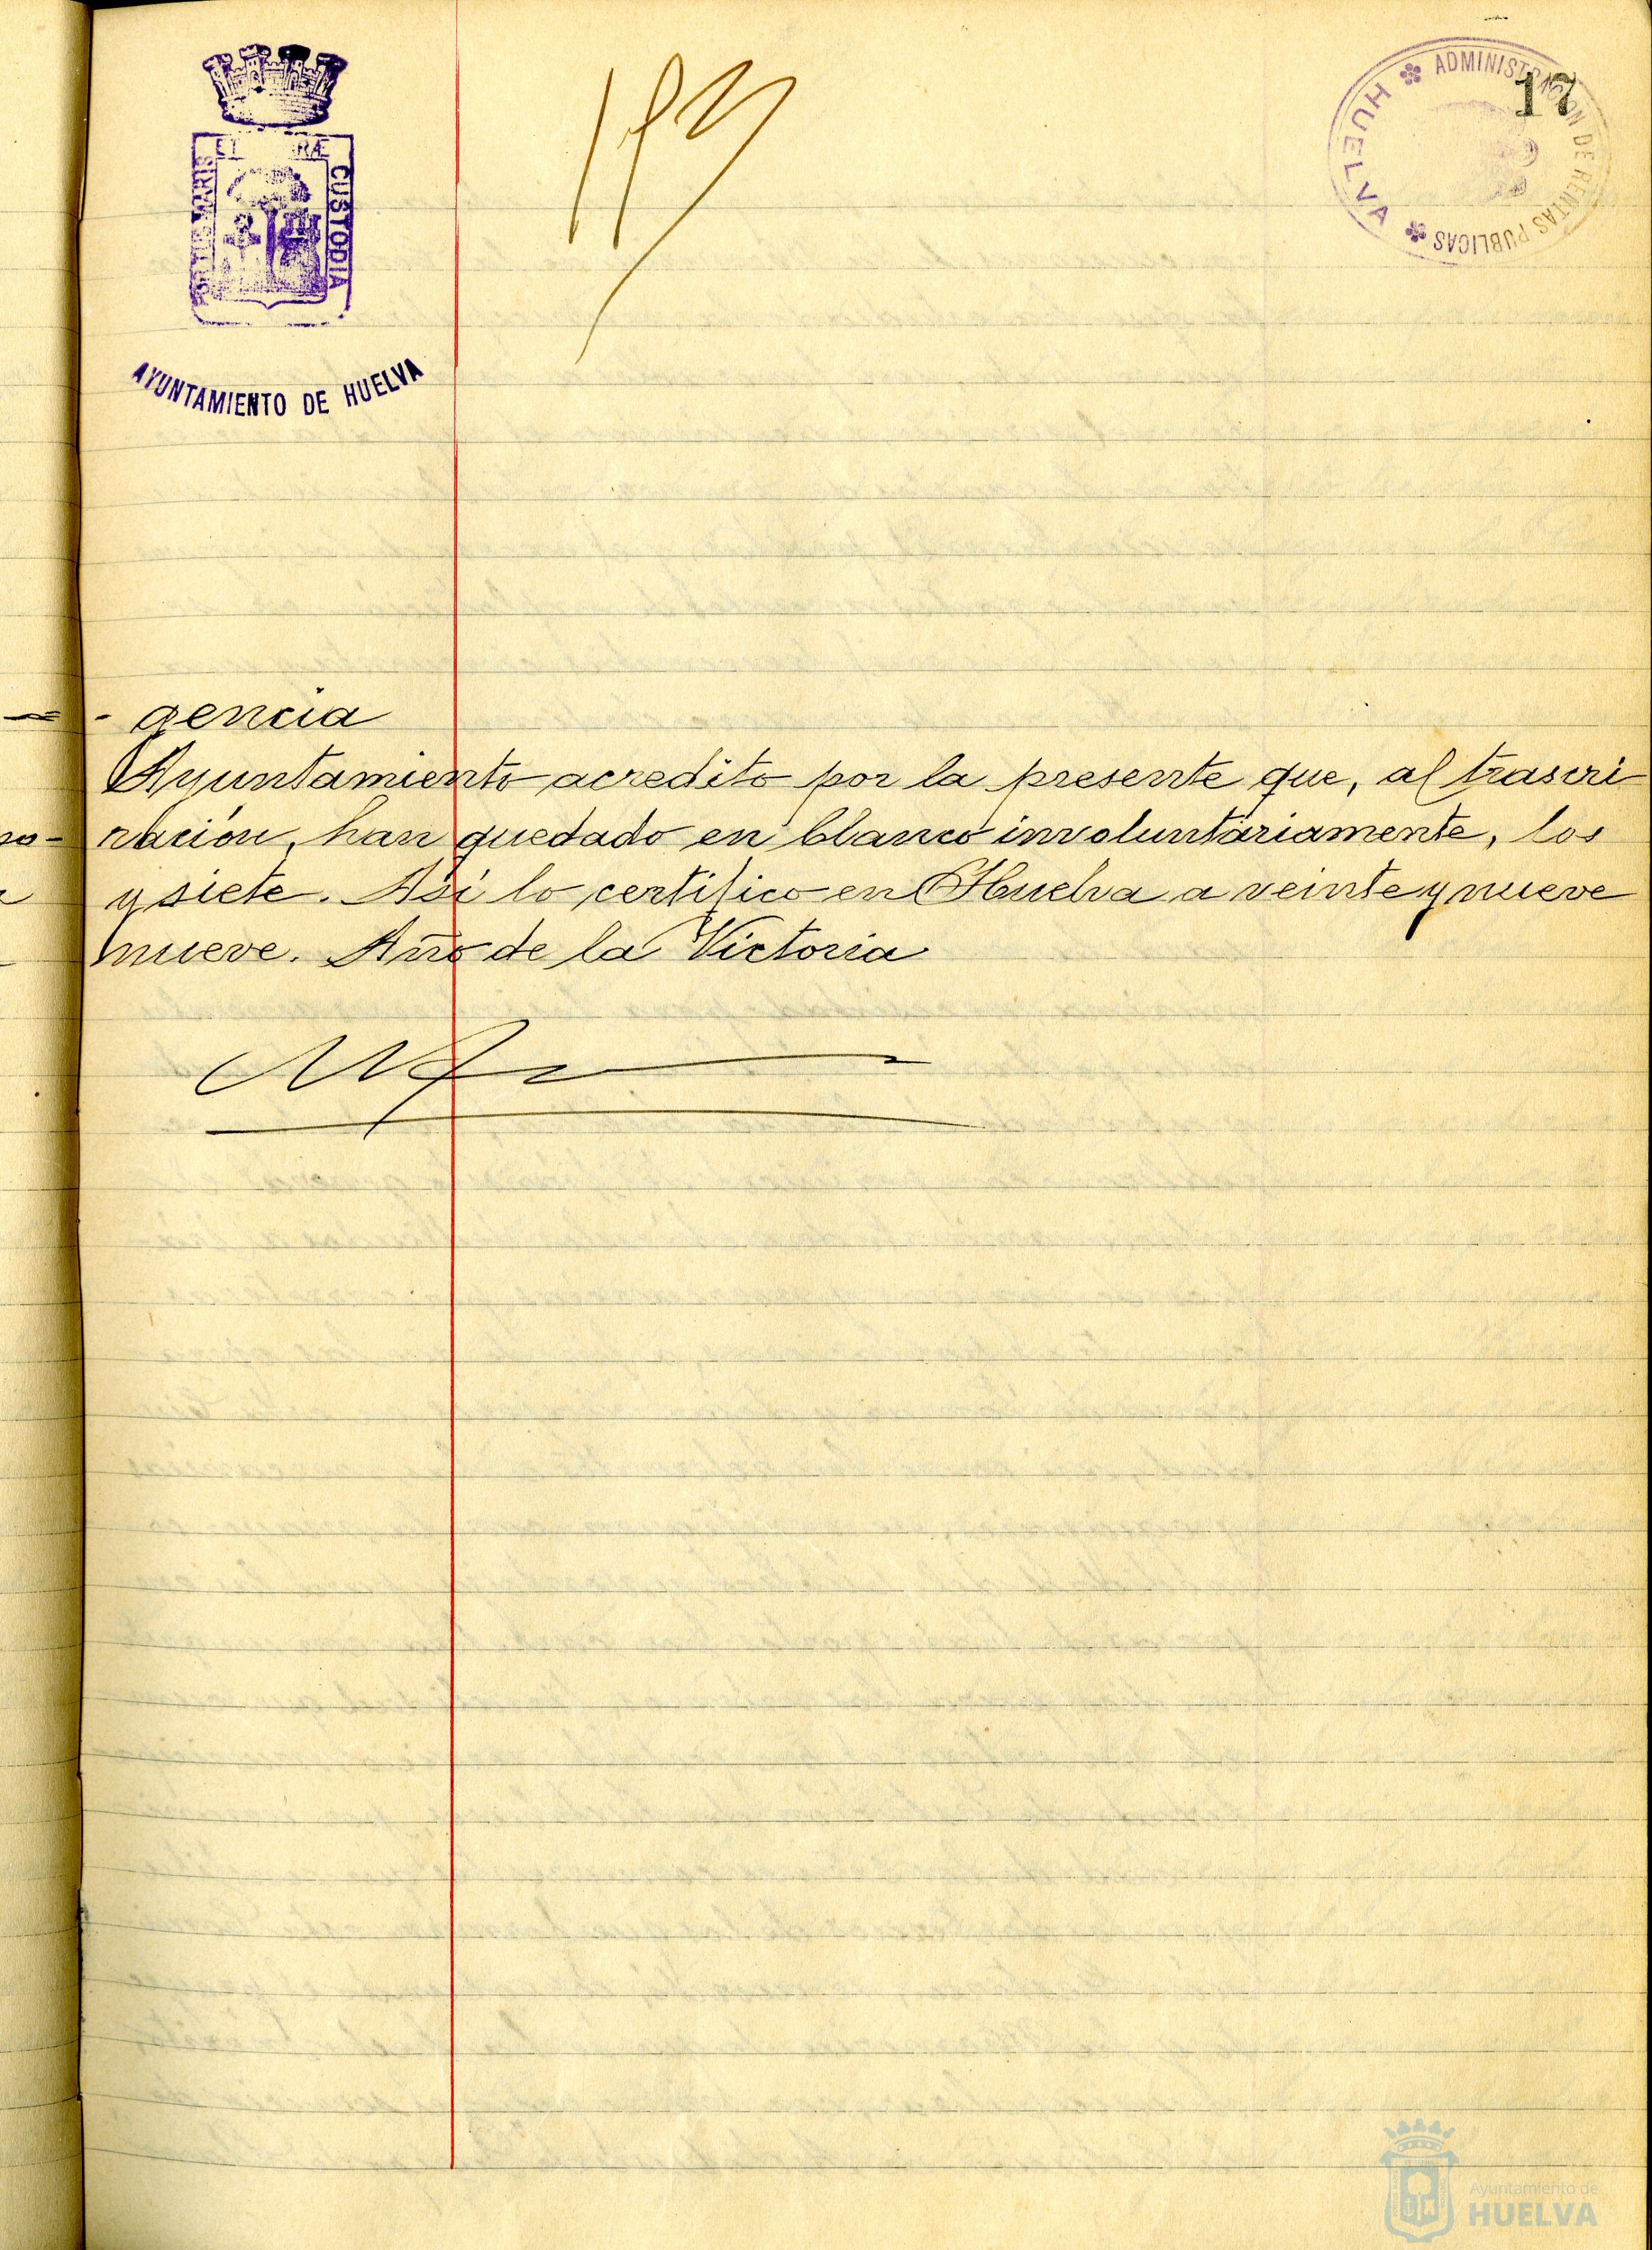 17
ADMINISTRACION DE RENTAS PUBLICAS
HUELVA
CUSTODIA
AYUNTAMIENTO DE HUELVA
- gencia
Ayuntamiento acredito por la presente que, al trascri-
ración, han quedado en blanco involuntariamente, los
y siete. Así lo certifico en Huelva a veinte y nueve
nueve. Año de la Victoria
Ayuntamiento de
HUELVA